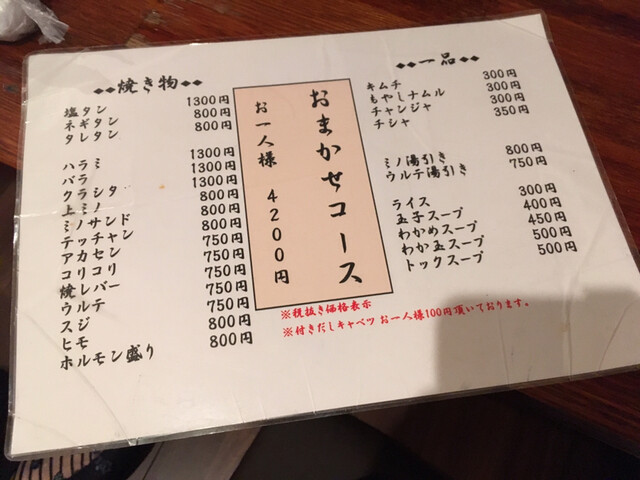 ◆◆焼き物◆◆
塩タン 1300円
ネギタン 800円
タレタン 800円
ハラミ 1300円
バラ 1300円
クラシタ 1300円
上ミノ 800円
ミノサンド 800円
テッチャン 750円
アカセン 750円
コリコリ 750円
焼レバー 750円
ウルテ 750円
スジ 750円
ヒモ 800円
ホルモン盛り 800円
おまかせコース
お一人様 4200円
◆◆◆一品◆◆◆
キムチ 300円
もやしナムル 300円
チャンジャ 300円
チシャ 350円
ミノ湯引き 800円
ウルテ湯引き 750円
ライス 300円
玉子スープ 400円
わかめスープ 450円
わか玉スープ 500円
トックスープ 500円
※税抜き価格表示
※付きだしキャベツ お一人様100円頂いております。